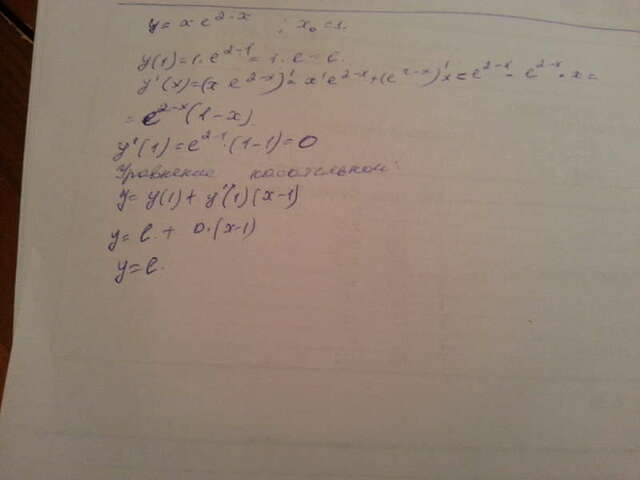 y = x e^{2-x} ; x₀ = 1.
y(1) = 1 · e^{2-1} = 1 · e = e.
y'(x) = (x e^{2-x})' = x' e^{2-x} + (e^{2-x})' x = e^{2-x} - e^{2-x} · x =
= e^{2-x} (1-x)
y'(1) = e^{2-1} · (1-1) = 0
Уравнение касательной:
y = y(1) + y'(1)(x-1)
y = e + 0·(x-1)
y = e.